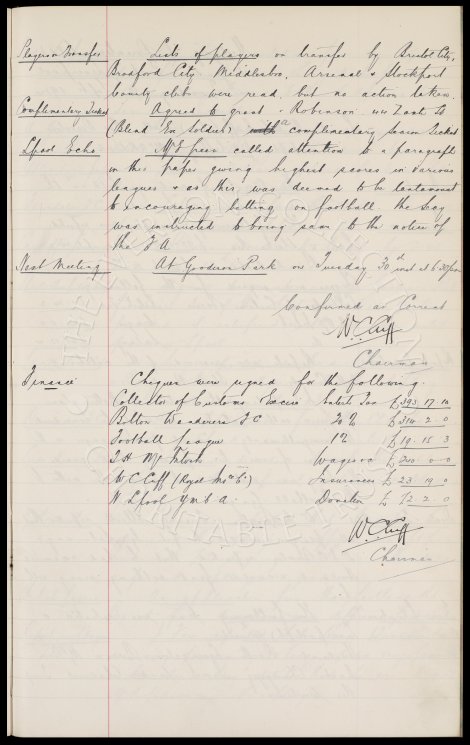 Players on Transfer Lists of players on transfer by Bristol City,
Bradford City Middlesbro, Arsenal & Stockport
County club were read but no action taken.
Complimentary Ticket Agreed to grant Robinson
(Blind Ex Soldier) with a complimentary season Ticket
Lpool Echo Mr Green called attention to a paragraph
in this paper giving highest scores in various
leagues & as this was deemed to be tantamount
to encouraging betting on football the Secy
was instructed to bring same to the notice of
the F A.
Next Meeting At Goodison Park on Tuesday 30th inst at 6.30pm
Confirmed as Correct
W.C. Cuff
Chairman
Finance Cheques were signed for the following.
Collector of Customs & Excise Entert Tax £393.17.10
Bolton Wanderers F C 20% £ 2.0
Football League 1% £19.15.3
T H McIntosh Wages &c £ 0.0
W C Cuff (Royal ) Insurances £ 23 19 0
N Lpool Y M C A. Donation £ 12.2.0
W.C. Cuff
Chairman
THE
CHARITABLE